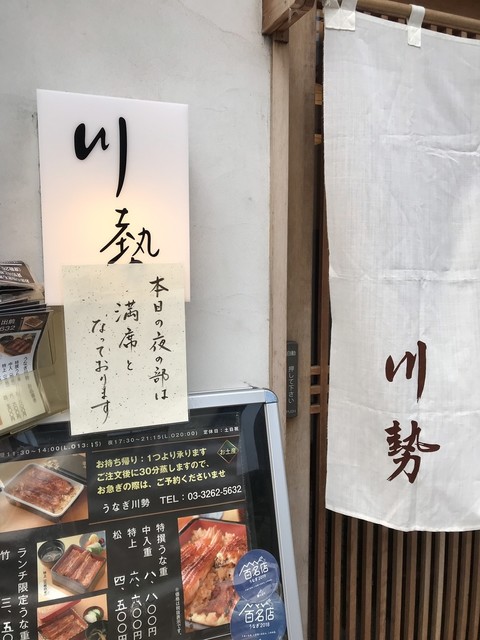 川勢
本日の夜の部は
満席と
なっております
川勢
押して下さい
夜17:30-21:15(L.O20:00) 定休日:土日祝
お持ち帰り:1つより承ります
ご注文後に30分蒸しますので、
お急ぎの際は、ご予約くださいませ
お土産
うなぎ川勢 TEL:03-3262-5632
特撰うな重
中入重 八、八〇〇円
特上 六、六〇〇円
松 四、五〇〇円
ランチ限定うな重
竹 三、五
百名店
うなぎ 2019
百名店
うなぎ 2018